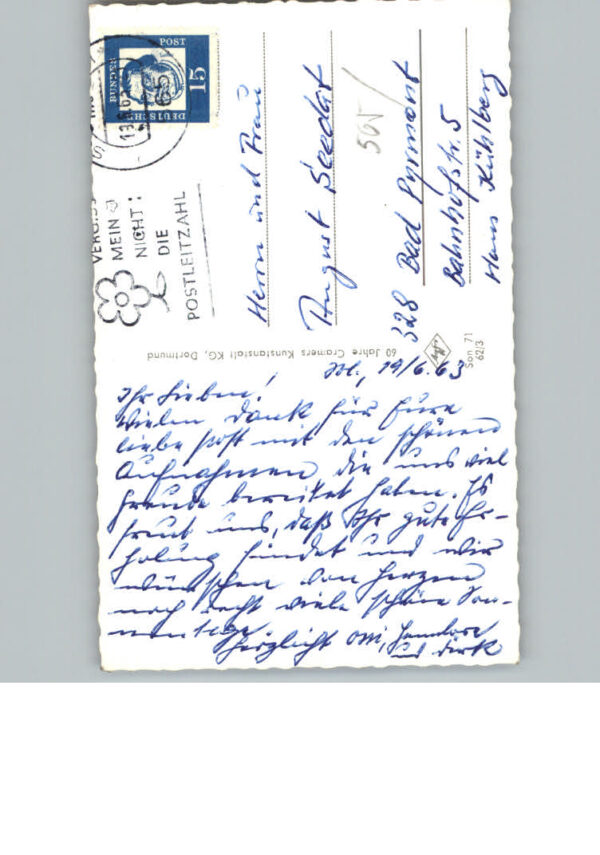 POST
15
DEUTSCHE
BUNDES
VERGISS
MEIN
NICHT:
DIE
POSTLEITZAHL
Herrn und Frau
August Beedat
565
328 Bad Pyrmont
Bahnhofstr. 5
Haus Kühlberg
60 Jahre Cramers Kunstanstalt KG, Dortmund
Son 71
62/3
19/6.63
Ihr Lieben!
Vielen Dank für Eure
liebe Post mit den schönen
Aufnahmen die uns viel
Freude bereitet haben. Es
freut uns, daß Ihr gute Er-
holung findet und wir
wünschen von Herzen
noch recht viele schöne Son-
nentage
Herzlichst Omi, Hannelore
und Dirk